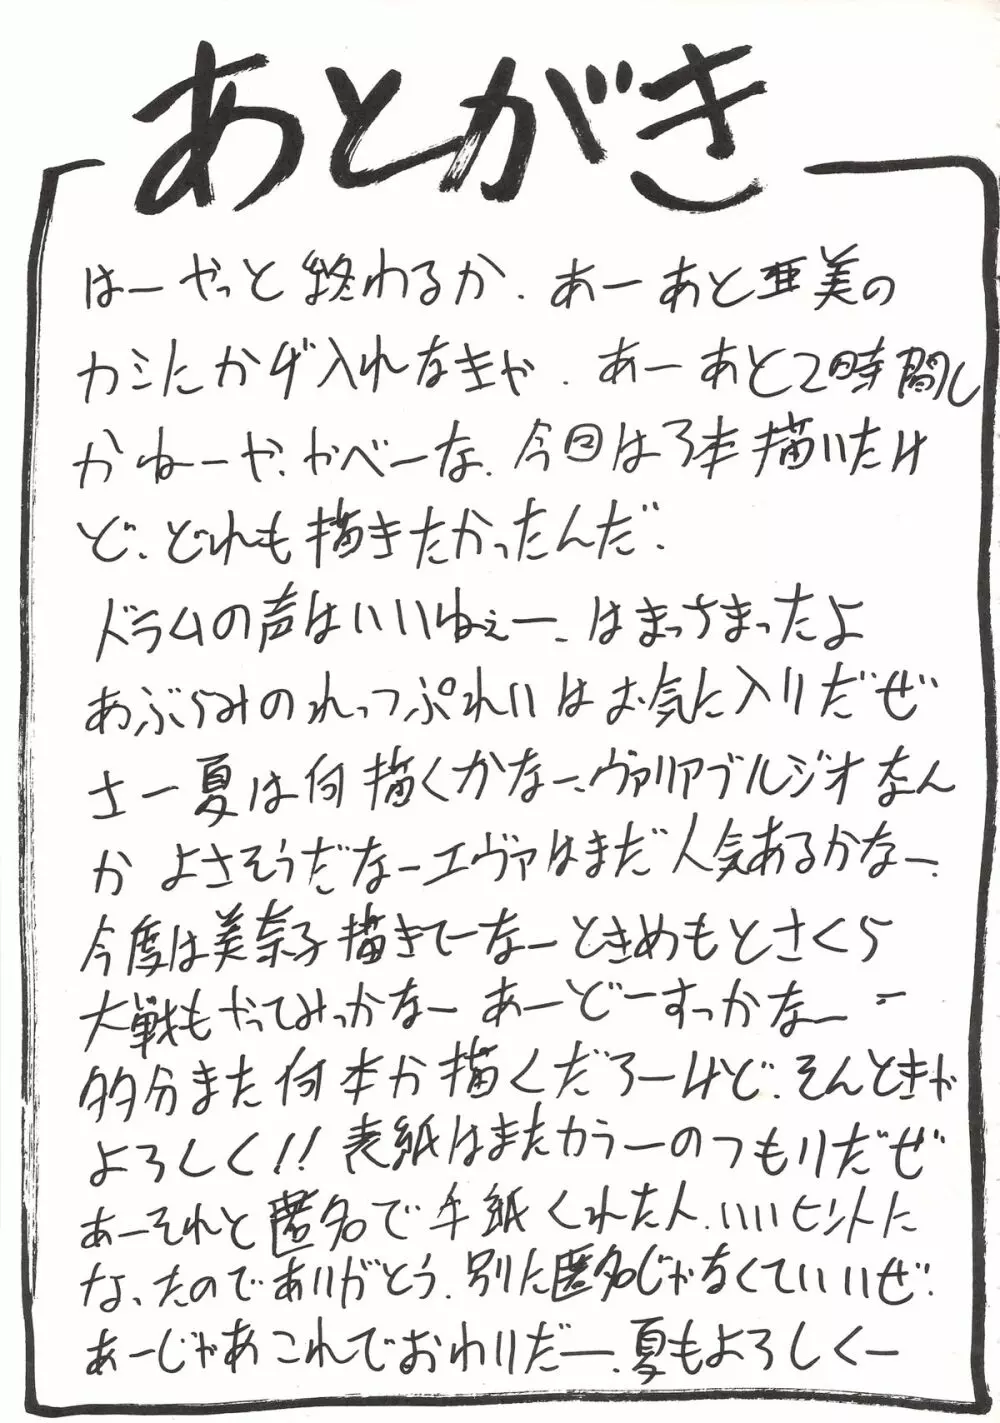 あとがき
はーやっと終わるか．あーあと亜美の
カミにかげ入れなきゃ．あーあと2時間し
かねーや、やべーな、今回は3本描いたけ
ど、どれも描きたかったんだ．
ドラムの声はいいねぇー、はまっさまったよ
あぶらみのれっつぷれいはお気に入りだぜ
さー夏は何描くかなー、ヴァリアブルジオなん
か よさそうだなーエヴァはまだ人気あるかなー．
今度は美奈子描きてーなーときめもとさくら
大戦もやってみっかなー あーどーすっかなー
多分また何本か描くだろーけど、そんときゃ
よろしく!! 表紙はまたカラーのつもりだぜ
あーそれと匿名で手紙くれた人、いいヒントに
な、たのでありがとう．別に匿名じゃなくていいぜ．
あーじゃあこれでおわりだー．夏もよろしくー